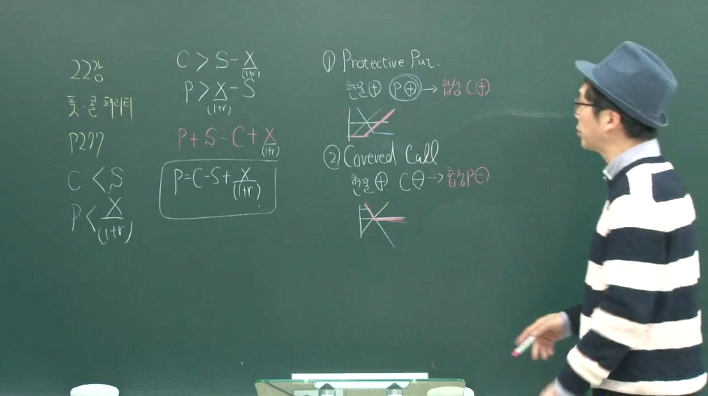 22강
풋·콜 패리티
P277
C < S
P < X/(1+r)
C > S - X/(1+r)
P > X/(1+r) - S
P + S = C + X/(1+r)
P = C - S + X/(1+r)
① Protective Put.
현물⊕ P⊕ → 합성 C⊕
② Covered Call
현물⊕ C⊖ → 합성P⊖